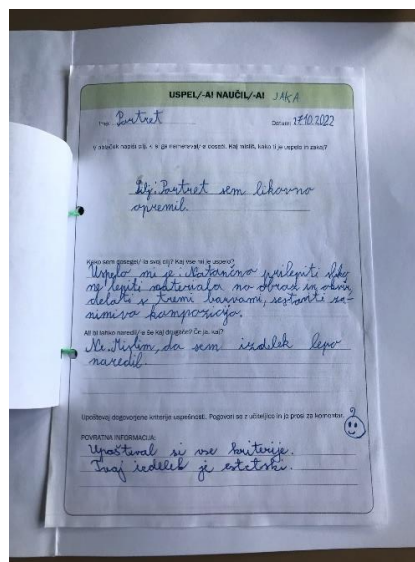 USPEL/-A! NAUČIL/-A! JAKA
Ime: Portret Datum: 17.10.2022
V oblaček napiši cilj, ki si ga nameraval/-a doseči. Kaj misliš, kako ti je uspelo in zakaj?
Cilj: Portret sem likovno
opremil.
Kako sem dosegel/-la svoj cilj? Kaj vse mi je uspelo?
Uspelo mi je: Natančno prilepiti
ne lepiti materiala na obraz in okvir,
delati s tremi barvami, sestaviti za-
nimivo kompozicijo.
Ali bi lahko naredil/-a še kaj drugače? Če ja, kaj?
Ne. Mislim, da sem izdelek lepo
naredil.
Upoštevaj dogovorjene kriterije uspešnosti. Pogovori se z učiteljico in jo prosi za komentar.
POVRATNA INFORMACIJA:
Upošteval si vse kriterije.
Tvoj izdelek je estetski.